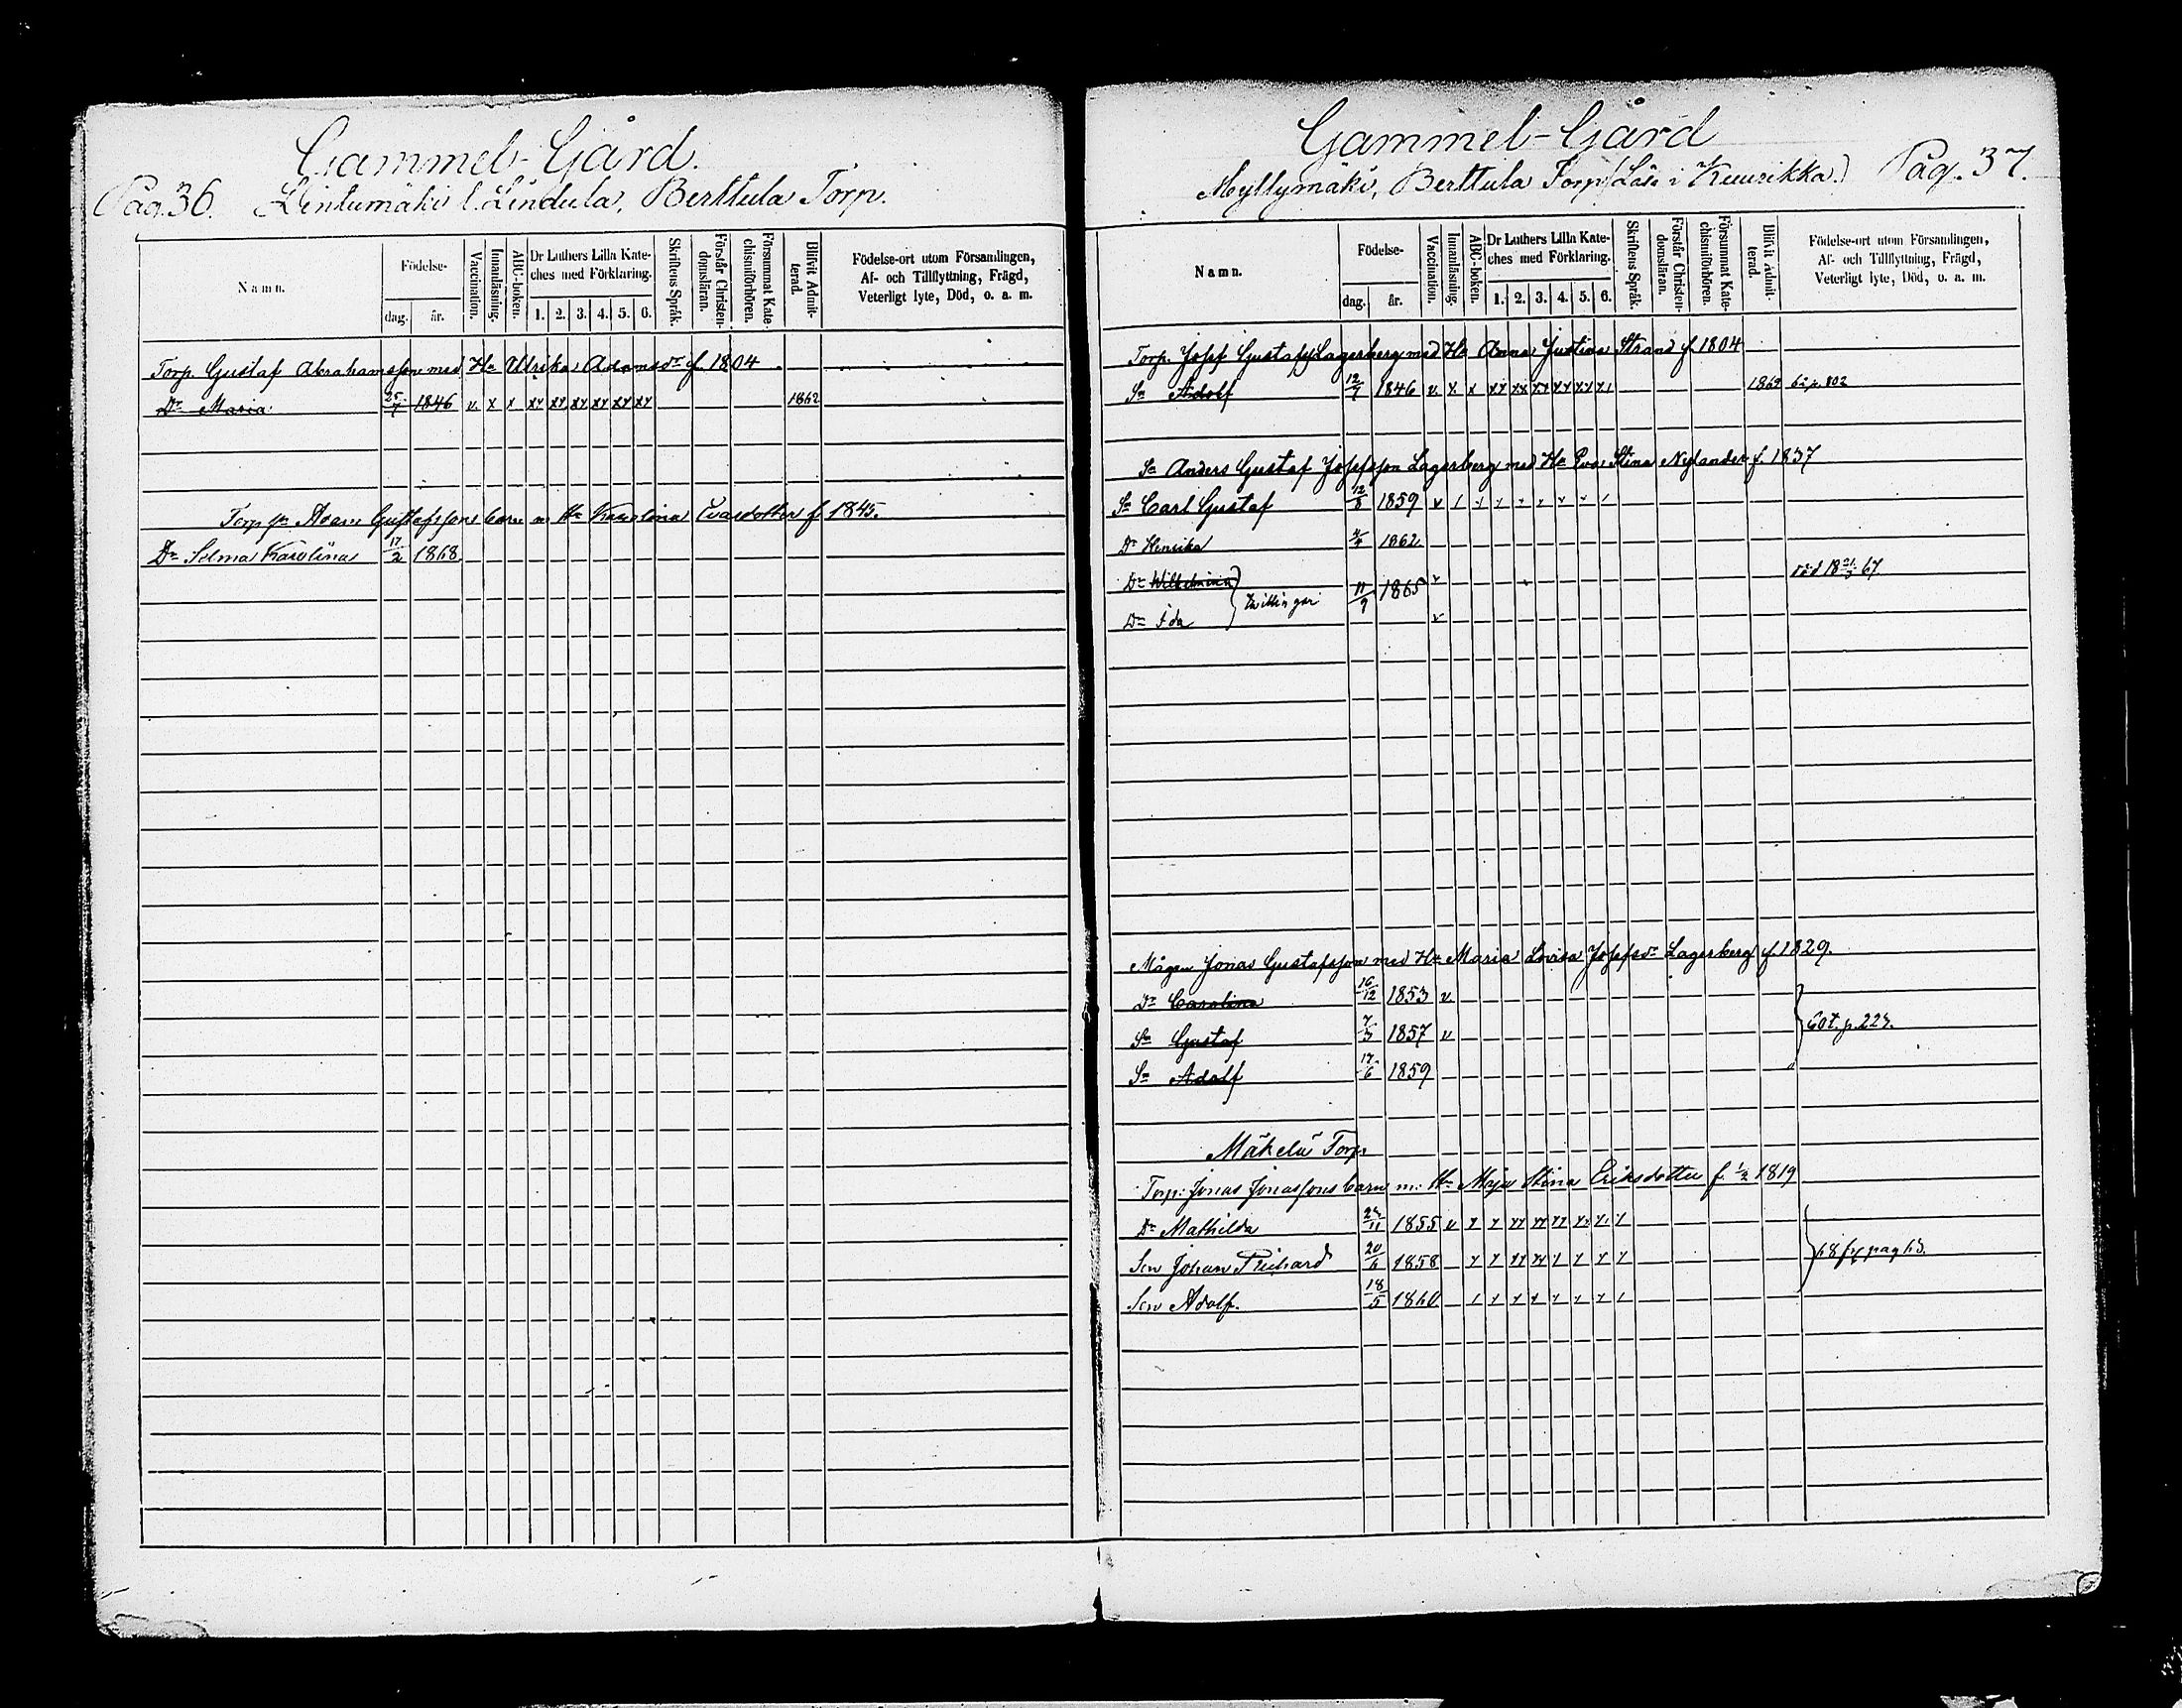 Gammel-Gård.
Pag. 36. Lintumäki l. Lindula, Berttula Torp.
Namn.
Födelse-
dag.
år.
Vaccination.
Innanläsning.
ABC-boken.
Dr Luthers Lilla Kate-
ches med Förklaring.
1. 2. 3. 4. 5. 6.
Skriftens Språk.
Förstår Christen-
domsläran.
Försummat Kate-
chismiförhören.
Blifvit Admit-
terad.
Födelse-ort utom Församlingen,
Af- och Tillflyttning, Frägd,
Veterligt lyte, Död, o. a. m.
Torp. Gustaf Abrahamsson med Hu Ulrika Adamsdr f. 1804.
Dr Maria 25/7 1846 v. x x xx xx xx xx xx xx 1862
Torp sn Adam Gustafssons barn m Hu Karolina Evasdotter f 1845.
Dr Selma Karolina 17/2 1868
Gammel-Gård
Myllymäki, Berttula Torp (Läs. i Kuurikka.) Pag. 37.
Namn.
Födelse-
dag.
år.
Vaccination.
Innanläsning.
ABC-boken.
Dr Luthers Lilla Kate-
ches med Förklaring.
1. 2. 3. 4. 5. 6.
Skriftens Språk.
Förstår Christen-
domsläran.
Försummat Kate-
chismiförhören.
Blifvit Admit-
terad.
Födelse-ort utom Församlingen,
Af- och Tillflyttning, Frägd,
Veterligt lyte, Död, o. a. m.
Torp. Josef Gustafss Lagerberg med Hu Anna Justina Strand f. 1804
Sn Adolf 12/7 1846 v. x x xx xx xx xx xx x 1869 62 p. 802
Sn Anders Gustaf Josefsson Lagerberg med Hu Eva Stina Nylander f. 1837
Sn Carl Gustaf 12/8 1859 v
Dr Henrika 1862
Dr Wilhelmina död 18 21/3 67
tvillingar 11/9 1865 v
Dr Ida v
Mågen Jonas Gustafsson med Hu Maria Lovisa Josefsdr Lagerberg f. 1829.
Dr Carolina 16/12 1853 v
Sn Gustaf 7/3 1857 v 60 t. p. 223.
Sn Adolf 17/6 1859
Mäkelä Torp.
Torp: Jonas Jonassons barn m: Hu Maja Stina Eriksdotter f. 1/2 1819
Dr Mathilda 1855 v
Son Johan Richard 20/6 1858 68 fl pag 63.
Son Adolf. 18/5 1860